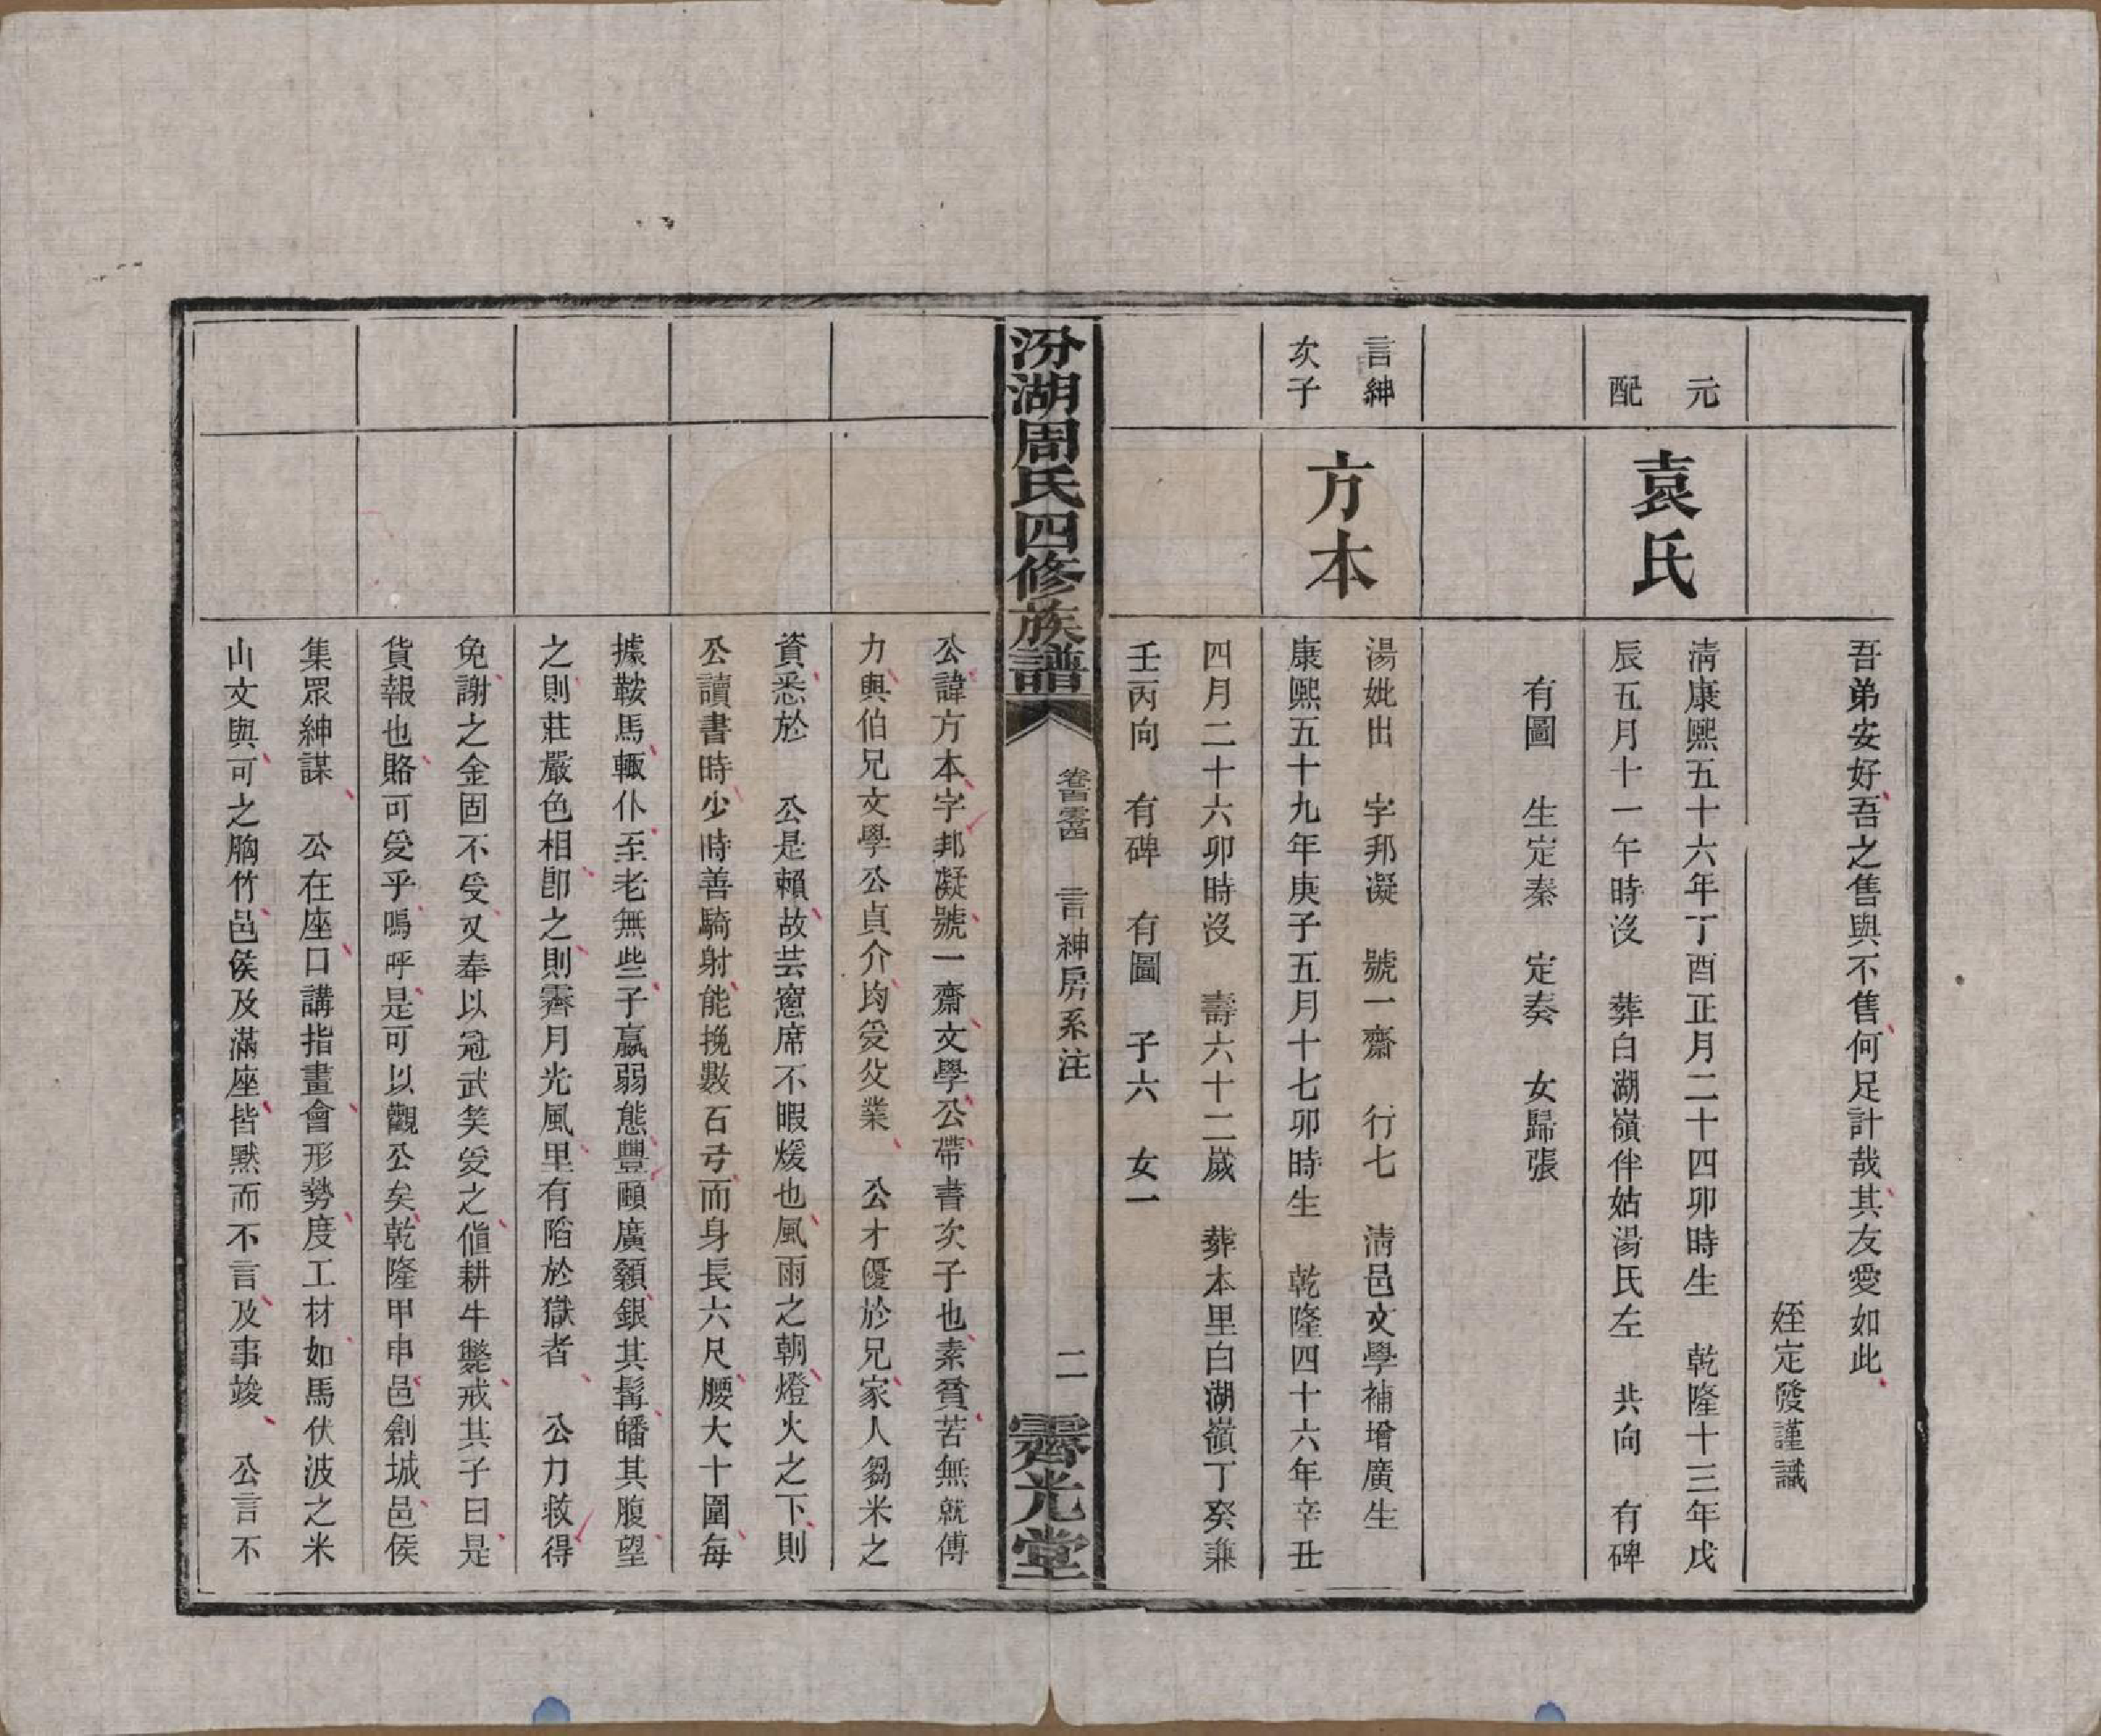 吾弟安好吾之售與不售何足計哉其友愛如此
姪定發謹識
元配
袁氏
清康熙五十六年丁酉正月二十四卯時生　乾隆十三年戊
辰五月十一午時沒　葬白湖嶺伴姑湯氏左　共向　有碑
有圖　生定秦　定奏　女歸張
言紳
次子
方本
湯妣出　字邦凝　號一齋　行七　清邑文學補增廣生
康熙五十九年庚子五月十七卯時生　乾隆四十六年辛丑
四月二十六卯時沒　壽六十二歲　葬本里白湖嶺丁癸兼
壬丙向　有碑　有圖　子六　女一
汾湖周氏四修族譜
言紳房系注
二
霽光堂
公諱方本字邦凝號一齋文學公帶書次子也素貧苦無就傅
力與伯兄文學公貞介均受父業　公才優於兄家人芻米之
資悉於　公是賴故芸窗席不暇煖也風雨之朝燈火之下則
公讀書時少時善騎射能挽數石弓而身長六尺腰大十圍每
據鞍馬輒仆至老無些子羸弱態豐頤廣顙銀其髯皤其腹望
之則莊嚴色相卽之則霽月光風里有陷於獄者　公力救得
免謝之金固不受又奉以冠武笑受之值耕牛斃戒其子曰是
貨報也賂可受乎嗚呼是可以觀公矣乾隆甲申邑創城邑侯
集眾紳謀　公在座口講指畫會形勢度工材如馬伏波之米
山文與可之胸竹邑侯及滿座皆默而不言及事竣　公言不